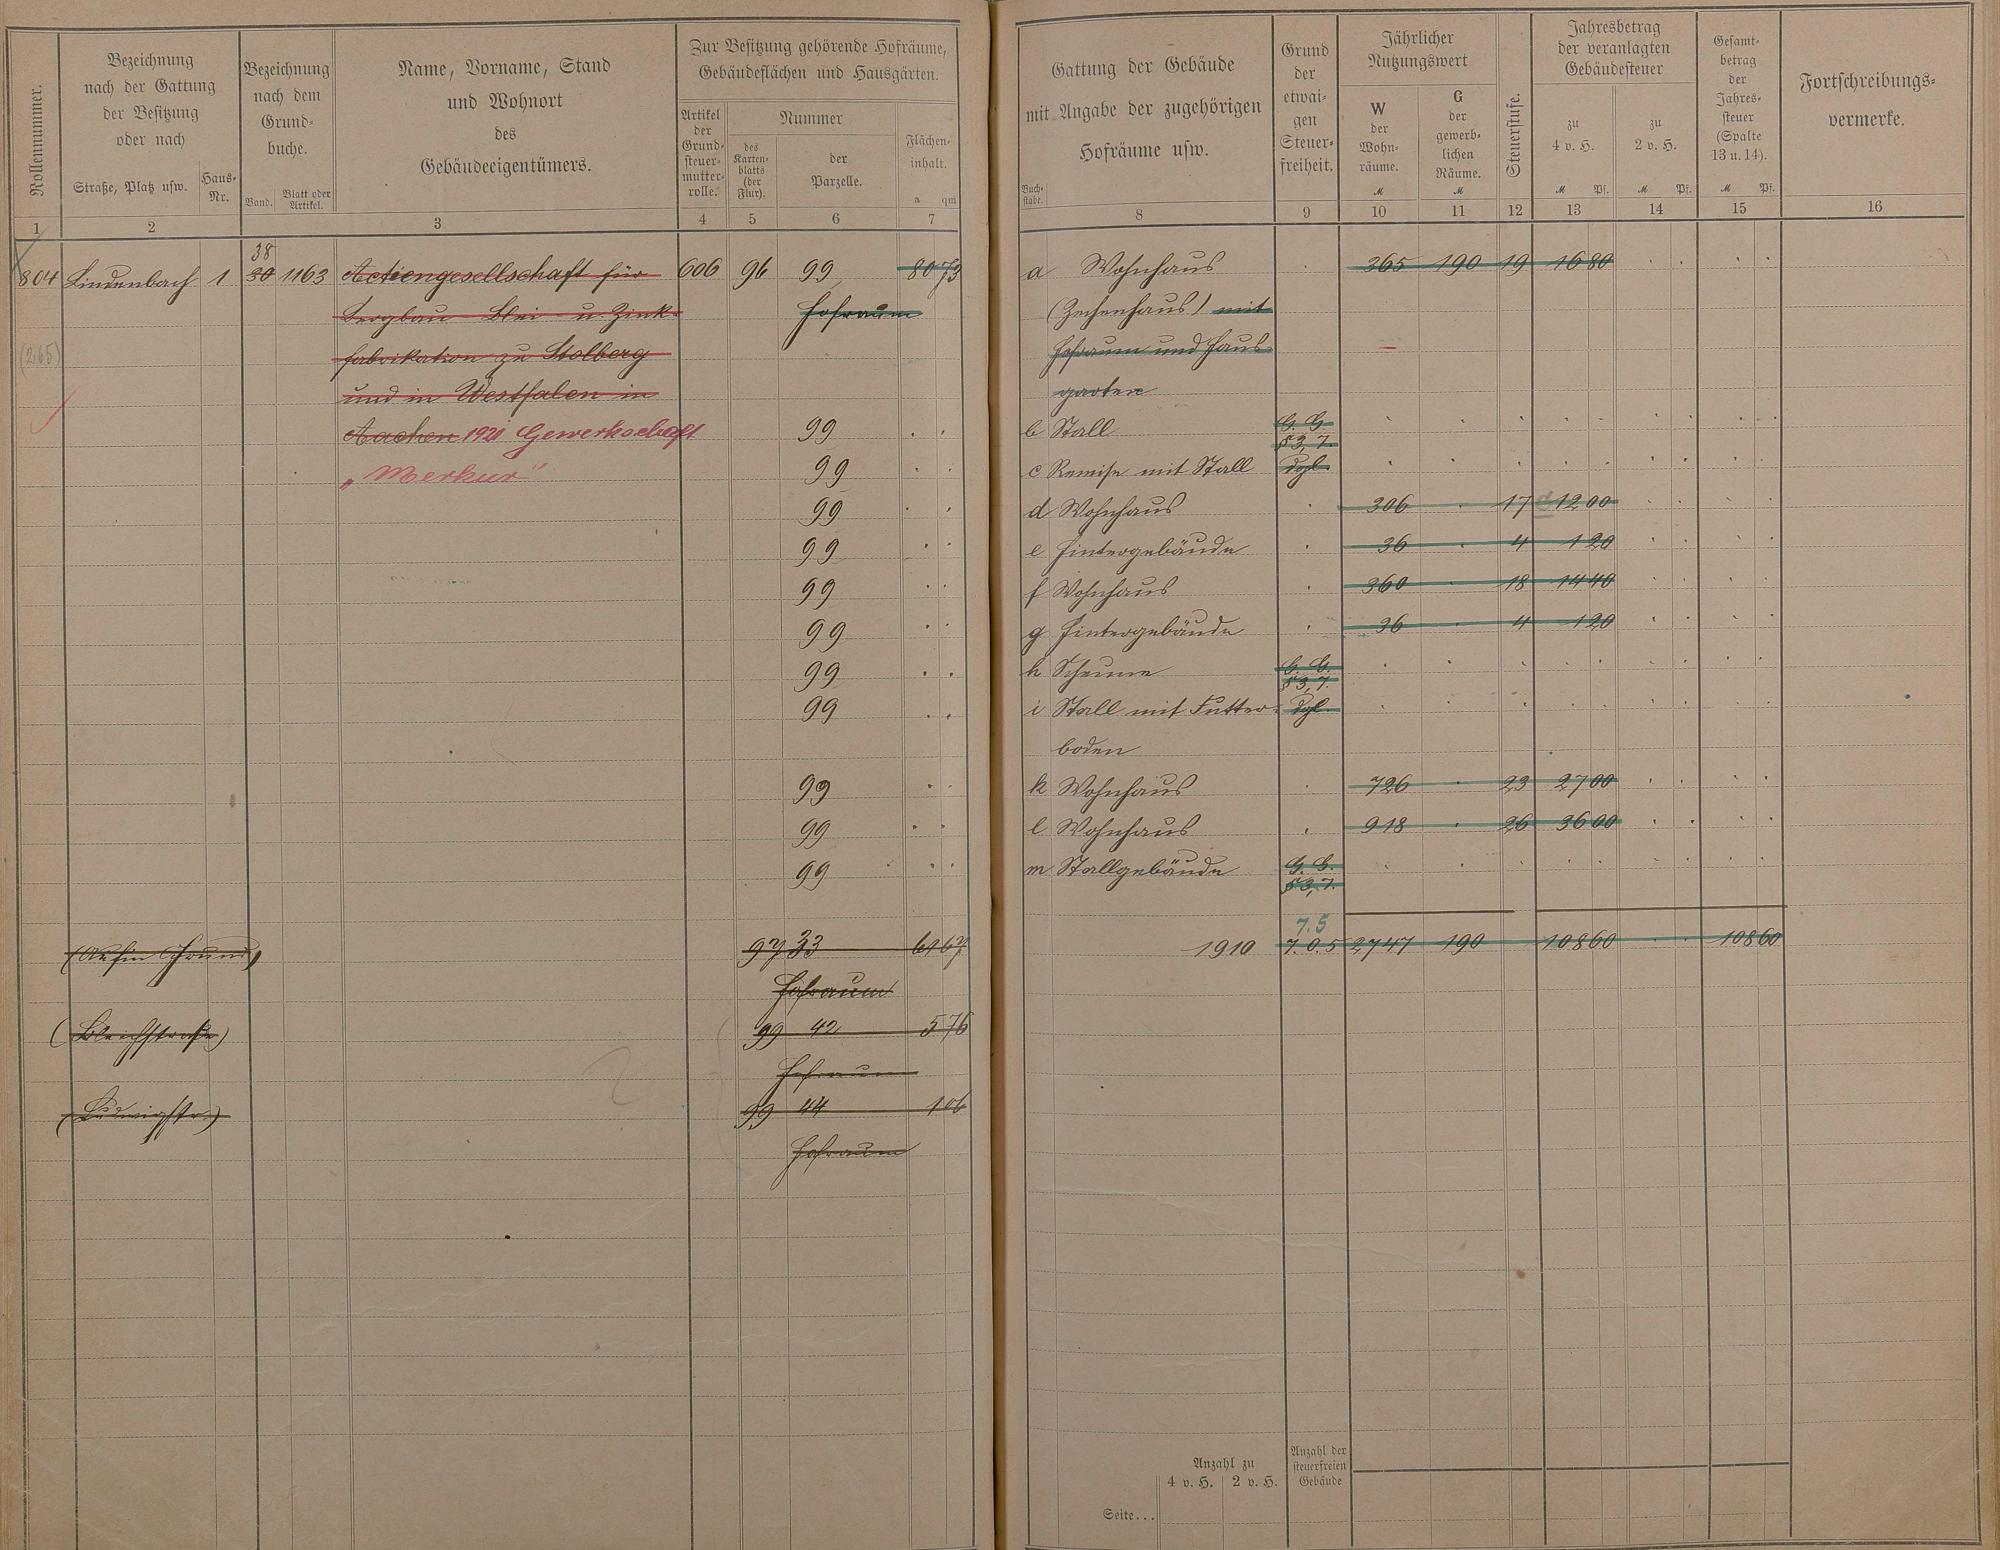 Rollennummer.
Bezeichnung
nach der Gattung
der Besitzung
oder nach
Straße, Platz usw.
Haus-
Nr.
Bezeichnung
nach dem
Grund-
buche.
Band.
Blatt oder
Artikel.
Name, Vorname, Stand
und Wohnort
des
Gebäudeeigentümers.
Zur Besitzung gehörende Hofräume,
Gebäudeflächen und Hausgärten.
Artikel
der
Grund-
steuer-
mutter-
rolle.
Nummer
des
Karten-
blatts
(der
Flur).
der
Parzelle.
Flächen-
inhalt.
a qm
1 2 3 4 5 6 7
38
804 Lindenbach 1 30 1163 Actiengesellschaft für 606 96 99 80 73
Bergbau Blei- u. Zink- Hofraum
(265) fabrikation zu Stolberg
und in Westfalen in
Aachen 1921 Gewerkschaft 99
„Merkur" 99
99
99
99
99
99
99
99
99
99
97 33 61 67
Hofraum
(Bleichstraße) 99 42 5 76
Hofraum
(Ludwigstr.) 99 44 1 06
Hofraum
Gattung der Gebäude
mit Angabe der zugehörigen
Hofräume usw.
Buch-
stabe.
Grund
der
etwai-
gen
Steuer-
freiheit.
Jährlicher
Nutzungswert
W
der
Wohn-
räume.
M
G
der
gewerb-
lichen
Räume.
M
Steuerstufe.
Jahresbetrag
der veranlagten
Gebäudesteuer
zu
4 v. H.
M Pf.
zu
2 v. H.
M Pf.
Gesamt-
betrag
der
Jahres-
steuer
(Spalte
13 u. 14).
M Pf.
Fortschreibungs-
vermerke.
8 9 10 11 12 13 14 15 16
a Wohnhaus 365 190 19 16 80
(Zechenhaus) mit
Hofraum und Haus-
garten
b Stall G. G.
§ 3, 7.
c Remise mit Stall dgl.
d Wohnhaus 306 17 12 00
e Hintergebäude 36 4 1 20
f Wohnhaus 360 18 14 40
g Hintergebäude 36 4 1 20
h Scheune G. G.
§ 3, 7.
i Stall mit Futter- dgl.
boden
k Wohnhaus 726 23 27 00
l Wohnhaus 918 26 36 00
m Stallgebäude G. G.
§ 3, 7.
7.5
1910 7.0.5 2747 190 108 60 108 60
Anzahl zu
4 v. H. 2 v. H.
Anzahl der
steuerfreien
Gebäude
Seite...